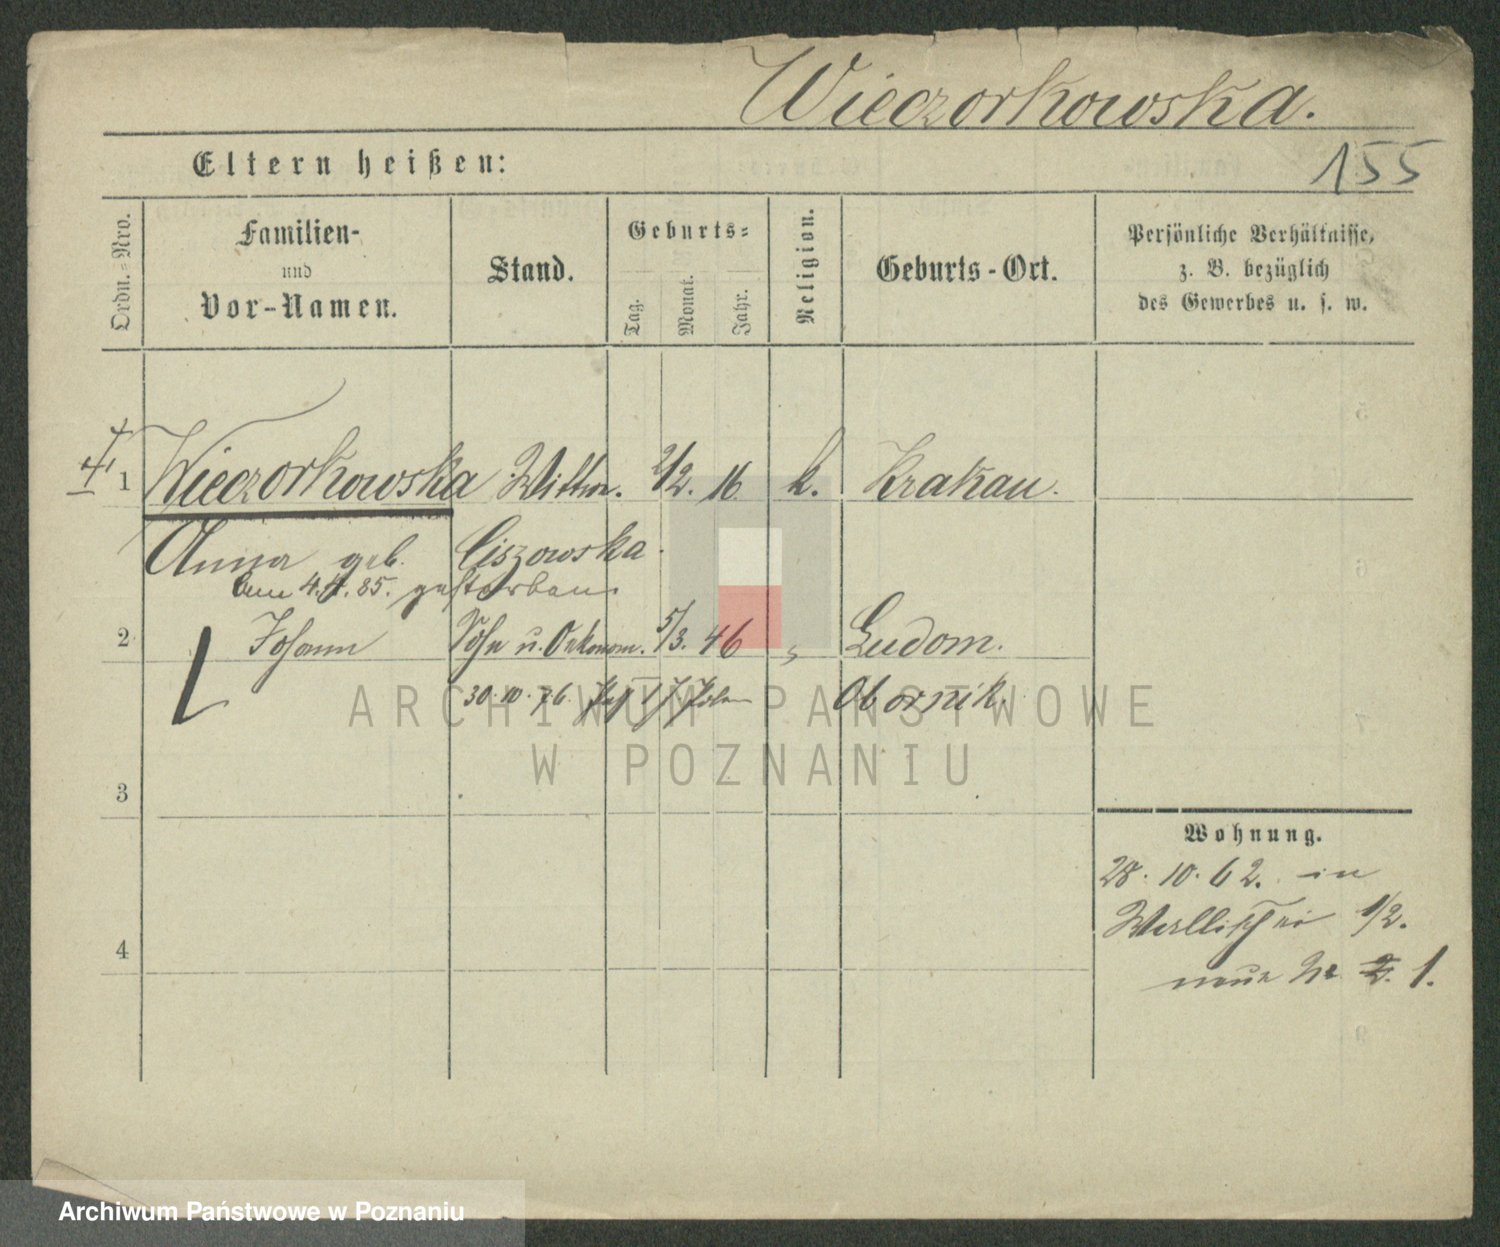 Wieczorkowska.
155
Eltern heißen:
Ordn.-Nro.
Familien-
und
Vor-Namen.
Stand.
Geburts-
Tag.
Monat.
Jahr.
Religion.
Geburts-Ort.
Persönliche Verhältnisse,
z. B. bezüglich
des Gewerbes u. s. w.
1 Wieczorkowska Wittwe. 2/2. 16 k. Krakau.
Anna geb. Ciszowska.
am 4.4.85. gestorben
2 Johann Sohn u. Oekonom. 5/3. 46 " Ludom.
30.10.76. Polen Obornik.
3
4
Wohnung.
28.10.62. in
Wallischei 1/2.
neue Nr 2. 1.
ARCHIWUM PAŃSTWOWE
W POZNANIU
Archiwum Państwowe w Poznaniu